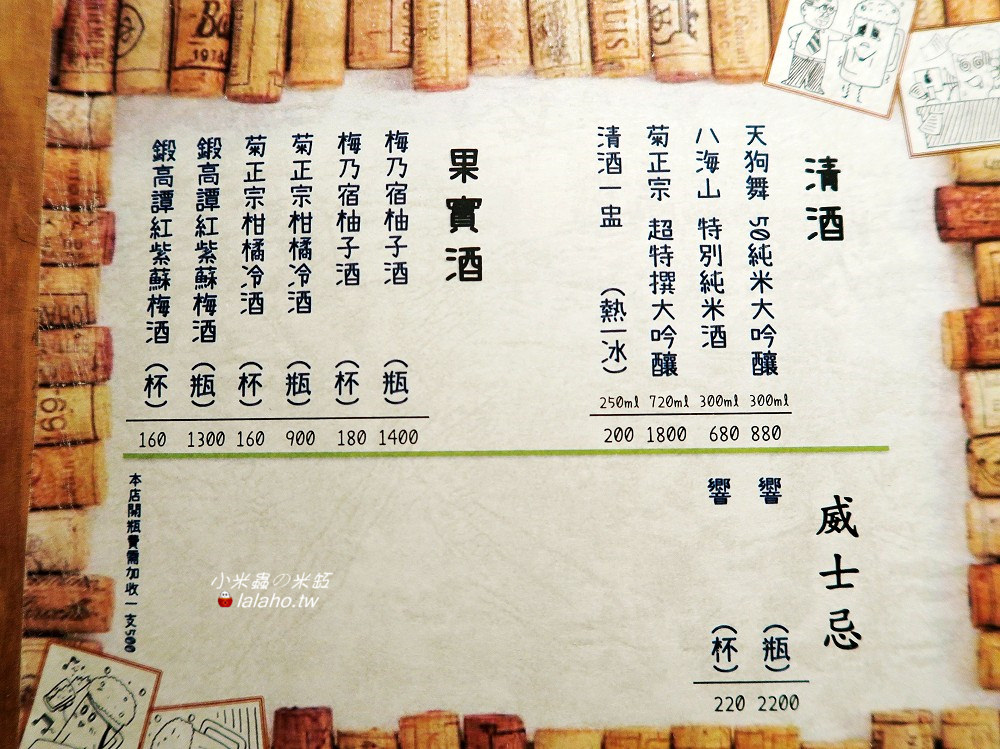 清酒
天狗舞 50純米大吟釀 300ml 880
八海山 特別純米酒 300ml 680
菊正宗 超特撰大吟釀 720ml 1800
清酒一盅 (熱/冰) 250ml 200
果實酒
梅乃宿柚子酒 (瓶) 1400
梅乃宿柚子酒 (杯) 180
菊正宗柑橘冷酒 (瓶) 900
菊正宗柑橘冷酒 (杯) 160
鍛高譚紅紫蘇梅酒 (瓶) 1300
鍛高譚紅紫蘇梅酒 (杯) 160
威士忌
響 (瓶) 2200
響 (杯) 220
本店開瓶費需加收一支500
小米蟲の米缸
lalaho.tw